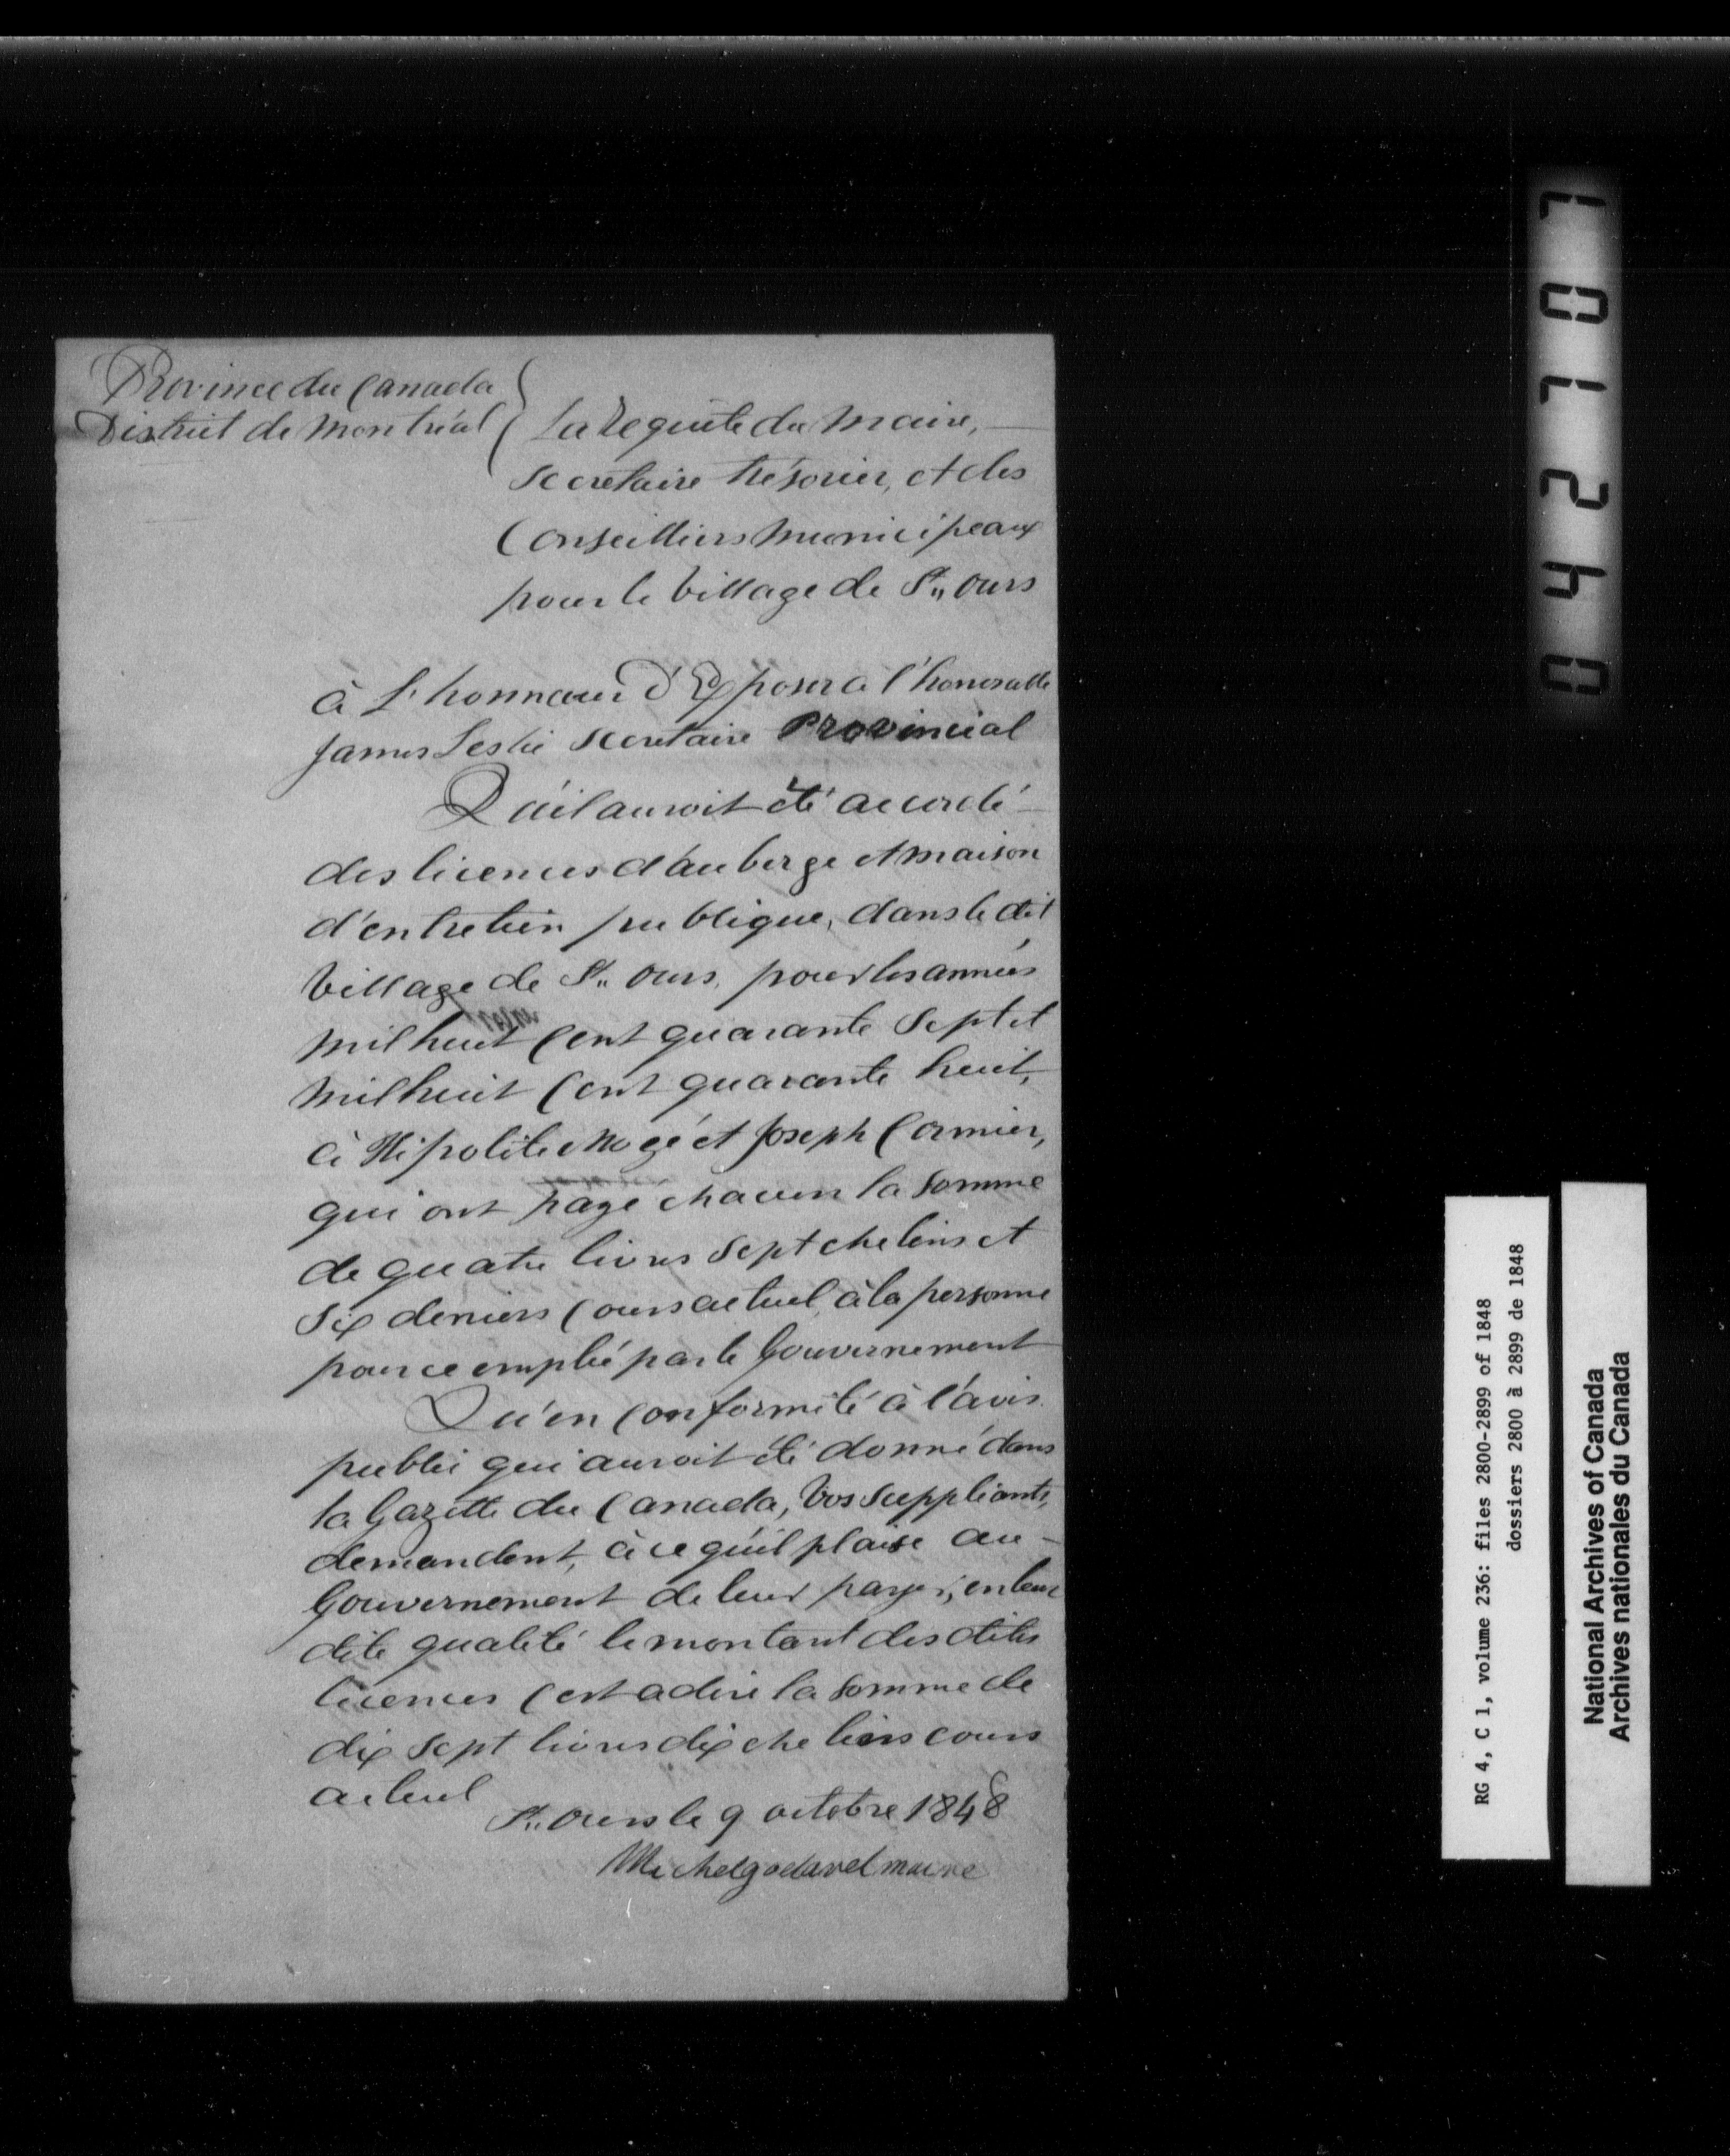 Province du Canada
District de Montréal
La Requête du Maire,
Secretaire trésorier, et des
Conseilliers Municipeaux
pour le Village de St„ Ours
à L'honneur d'Exposer a l'honorable
James Leslie Secretaire Provincial
Qu'il auroit été accordé
des licences d'auberge et maison
d'entretien publique, dans le dit
Village de St„ Ours, pour les années
mil huit Cent quarante Sept et
mil huit Cent quarante huit,
à Hipolite Mogé et Joseph Cormier,
qui ont payé chacun la Somme
de quatre livres Sept chelins et
Six deniers Cours actuel, à la personne
pour ce emploié par le Gouvernement
Qu'en Conformité à l'avis
public qui auroit été donné dans
la Gazette du Canada, Vos Suppliants,
demandent, à ce qu'il plaise au
Gouvernement de leur payer, en leur
dite qualité le montant des dites
licences C'est a dire la Somme de
dix Sept livres dix chelins cours
actuel
St„ Ours le 9 octobre 1848
Michel godard maire
0 4 2 1 0 7
RG 4, C 1, volume 236: files 2800-2899 of 1848
dossiers 2800 à 2899 de 1848
National Archives of Canada
Archives nationales du Canada